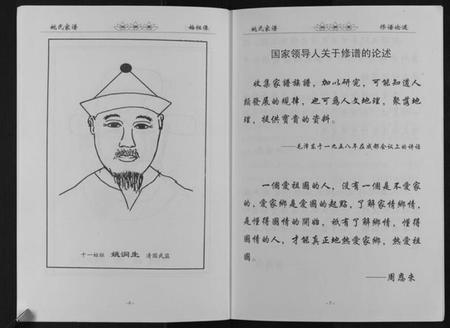 姚氏家谱
始祖像
十一始祖 姚润生 清国武监
-6-
修谱论述
国家领导人关于修谱的论述
收集家谱族譜，加以研究，可能知道人
類發展的规律，也可為人文地理，聚落地
理，提供寶貴的資料。
——毛泽东于一九五八年在成都会议上的讲话
一個愛祖國的人，没有一個是不愛家
的，愛家鄉是愛國的起點，了解家情鄉情，
是懂得國情的開始，祇有了解鄉情，懂得
國情的人，才能真正地熱愛家鄉，熱愛祖
國。
——周恩来
-7-